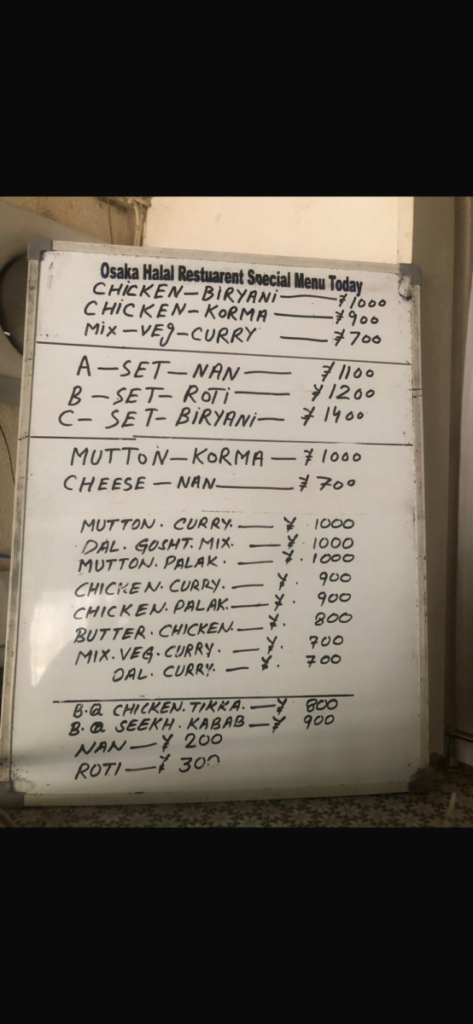 Osaka Halal Restuarent Special Menu Today
CHICKEN-BIRYANI — ¥1000
CHICKEN-KORMA — ¥900
MIX-VEG-CURRY — ¥700
A-SET-NAN — ¥1100
B-SET-ROTI — ¥1200
C-SET-BIRYANI — ¥1400
MUTTON-KORMA — ¥1000
CHEESE-NAN — ¥700
MUTTON. CURRY. — ¥ 1000
DAL. GOSHT. MIX. — ¥. 1000
MUTTON. PALAK. — ¥. 1000
CHICKEN. CURRY. — ¥. 900
CHICKEN. PALAK. — ¥. 900
BUTTER. CHICKEN. — ¥. 800
MIX. VEG. CURRY. — ¥. 700
DAL. CURRY. — ¥. 700
B.Q CHICKEN. TIKKA. — ¥ 800
B.Q SEEKH. KABAB — ¥ 900
NAN — ¥ 200
ROTI — ¥ 300